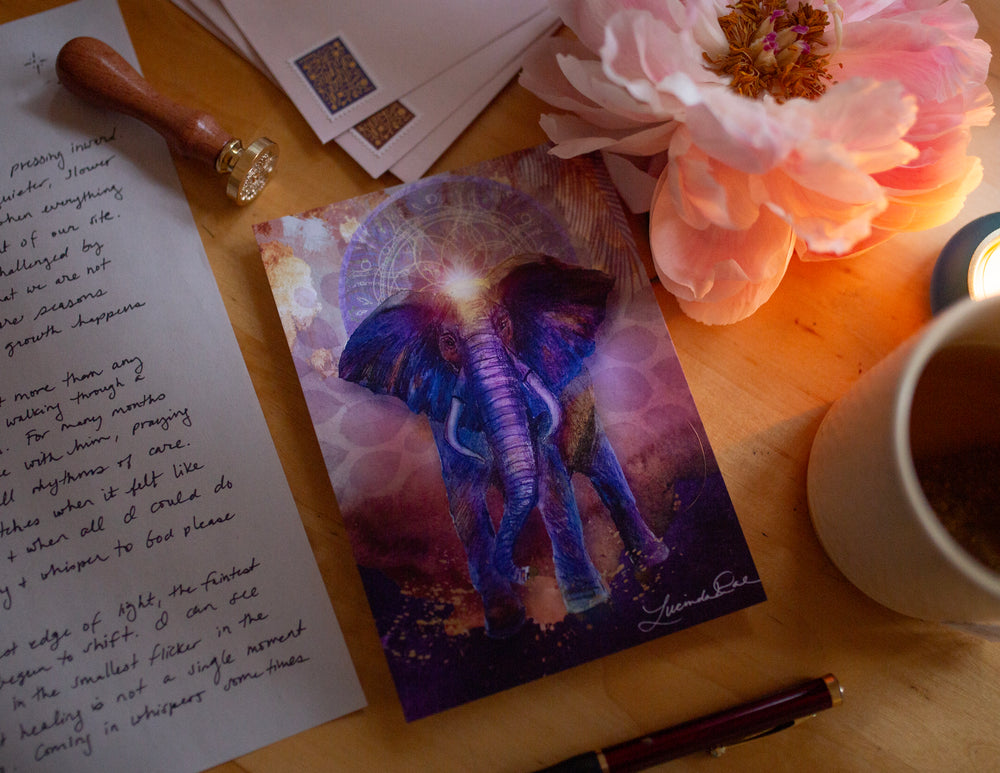 pressing inward
quieter, slower
when everything
t of our site.
challenged by
that we are not
are seasons
growth happens
t more than any
walking through a
. For many months
e with him, praying
ll rhythms of care.
tches when it felt like
+ when all I could do
y + whisper to God please
st edge of light, the faintest
begun to shift. I can see
in the smallest flicker in the
t healing is not a single moment
coming in whispers sometimes
Lucinda Rae